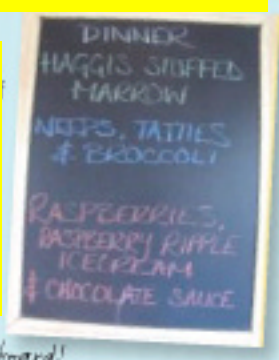 DINNER
HAGGIS STUFFED
MARROW
NEEPS, TATTIES
& BROCCOLI
RASPBERRIES,
RASPBERRY RIPPLE
ICECREAM
& CHOCOLATE SAUCE